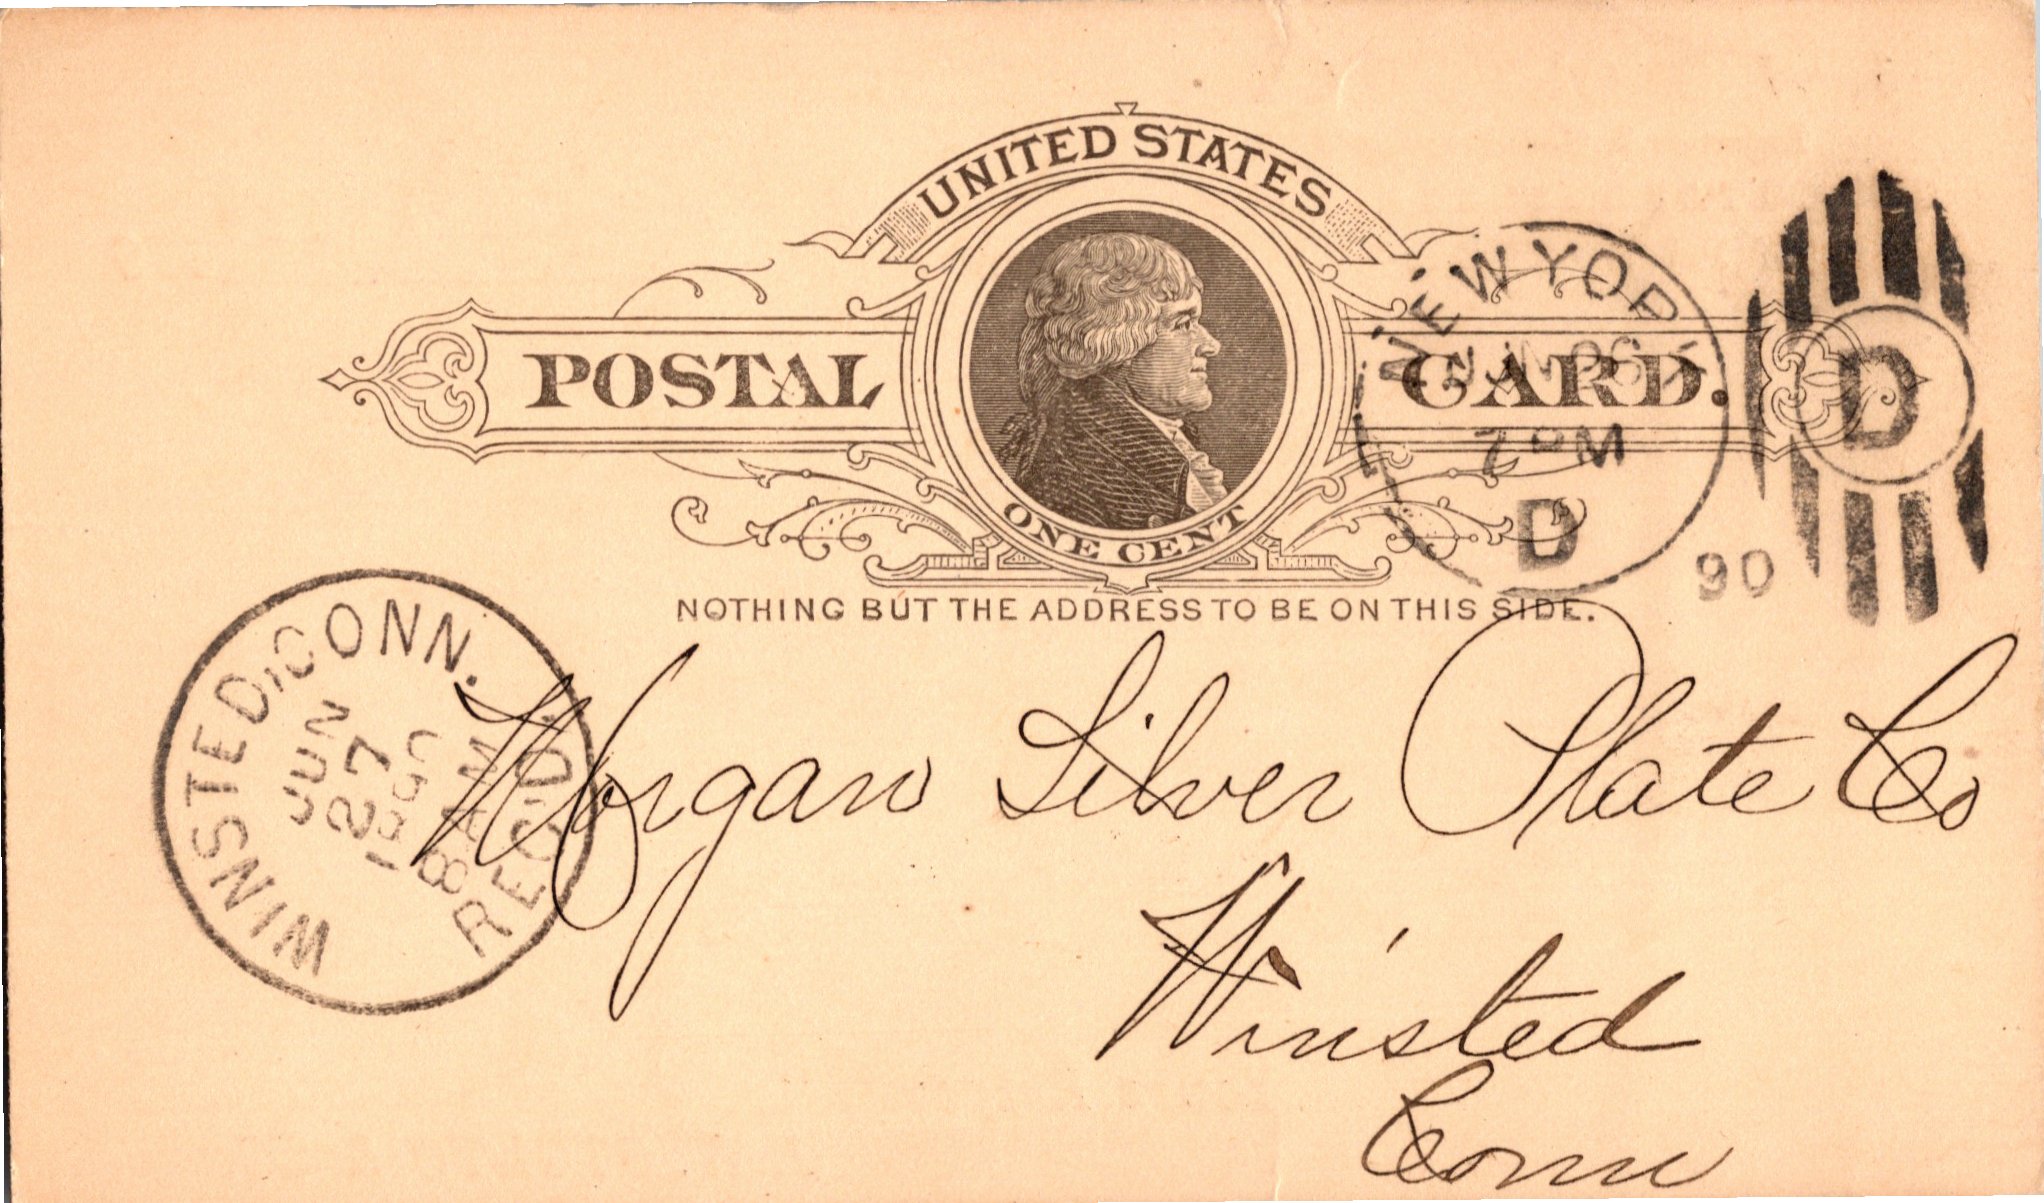 UNITED STATES
POSTAL CARD.
ONE CENT
NOTHING BUT THE ADDRESS TO BE ON THIS SIDE.
NEW YORK
JUN 26
7 PM
D
90
D
WINSTED, CONN.
JUN
27
1890
8 AM
REC'D.
Morgan Silver Plate Co
Winsted
Conn